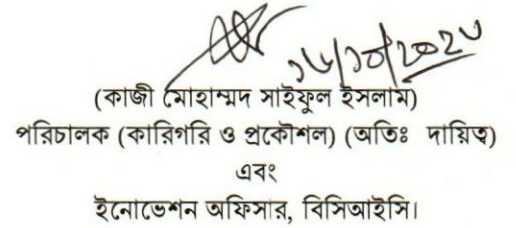 (কাজী মোহাম্মদ সাইফুল ইসলাম)
পরিচালক (কারিগরি ও প্রকৌশল) (অতিঃ দায়িত্ব)
এবং
ইনোভেশন অফিসার, বিসিআইসি।